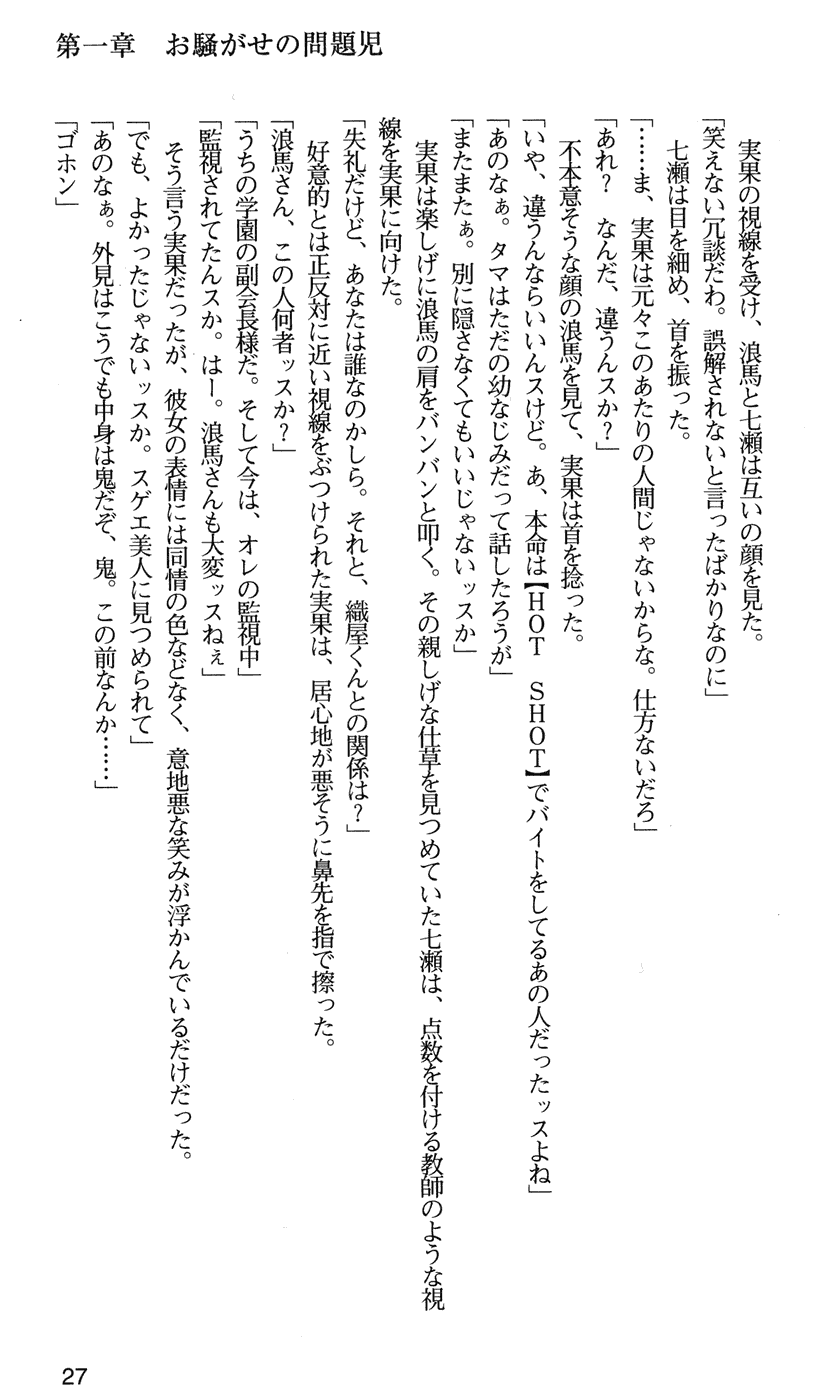 第一章　お騒がせの問題児
　実果の視線を受け、浪馬と七瀬は互いの顔を見た。
「笑えない冗談だわ。誤解されないと言ったばかりなのに」
　七瀬は目を細め、首を振った。
「……ま、実果は元々このあたりの人間じゃないからな。仕方ないだろ」
「あれ？　なんだ、違うんスか？」
　不本意そうな顔の浪馬を見て、実果は首を捻った。
「いや、違うんならいいんスけど。あ、本命は【ＨＯＴ　ＳＨＯＴ】でバイトをしてるあの人だったッスよね」
「あのなぁ。タマはただの幼なじみだって話したろうが」
「またまたぁ。別に隠さなくてもいいじゃないッスか」
　実果は楽しげに浪馬の肩をバンバンと叩く。その親しげな仕草を見つめていた七瀬は、点数を付ける教師のような視
線を実果に向けた。
「失礼だけど、あなたは誰なのかしら。それと、織屋くんとの関係は？」
　好意的とは正反対に近い視線をぶつけられた実果は、居心地が悪そうに鼻先を指で擦った。
「浪馬さん、この人何者ッスか？」
「うちの学園の副会長様だ。そして今は、オレの監視中」
「監視されてたんスか。はー。浪馬さんも大変ッスねぇ」
　そう言う実果だったが、彼女の表情には同情の色などなく、意地悪な笑みが浮かんでいるだけだった。
「でも、よかったじゃないッスか。スゲエ美人に見つめられて」
「あのなぁ。外見はこうでも中身は鬼だぞ、鬼。この前なんか……」
「ゴホン」
27